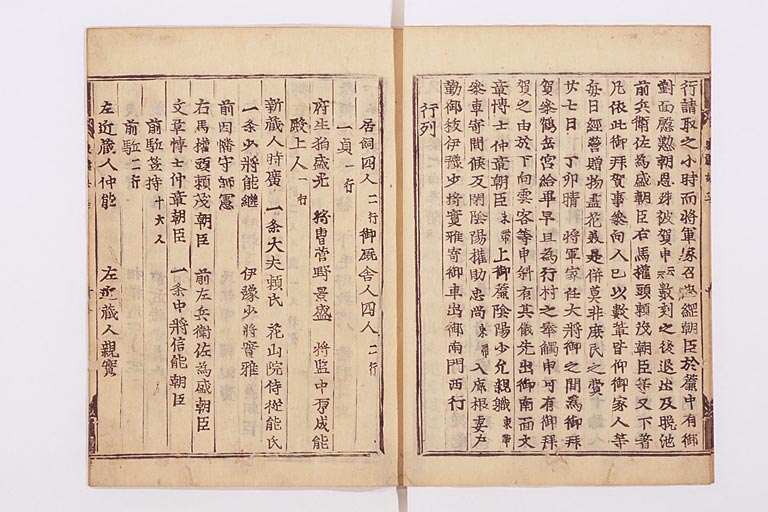 行請取之小時而將軍家召忠經朝臣於簾中有御
對面慇懃朝恩殊被賀申云云數刻之後退出及晩池
前兵衛佐為盛朝臣右馬權頭頼茂朝臣等又下著
凡依此御拜賀事參向人已以數輩皆仰御家人等
每日經營贈物盡花美是併莫非庶民之費
廿七日丁卯晴將軍家任大將御之間為御拜
賀參鶴岳宮給早旦為行村之奉觸申可有御拜
賀之由於下向雲客等申斜有其儀先出御南面文
章博士仲章朝臣束帶上御簾陰陽少允親職束帶
參車寄間候反閇陰陽權助忠尚束帶入席根妻戶
勤御祓伊豫少將實雅寄御車出御南門西行
行列
居飼四人二行御厩舍人四人二行
一員一行
府生狛盛光 將曹菅野景盛 將監中原成能
殿上人一行
新蔵人時廣 一条大夫頼氏 花山院侍從能氏
一条少將能継 伊豫少將實雅
前因幡守師憲
右馬權頭頼茂朝臣 前左兵衛佐為盛朝臣
文章博士仲章朝臣 一条中將信能朝臣
前駈笠持十六人
前駈二行
左近蔵人仲能 左近蔵人親實